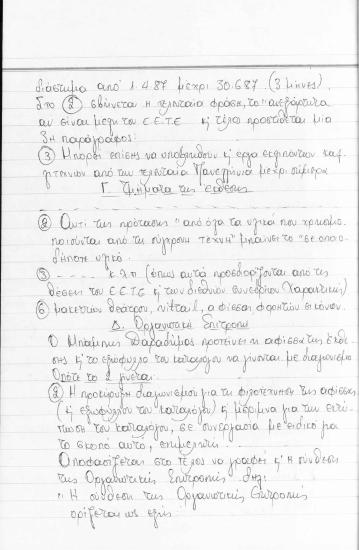 διάστημα από 1.4.87 μέχρι 30.6.87 (3 μήνες).
Στο ② σβύνεται η τελευταία φράση, το "ανεξάρτητα
αν είναι μέλη του Ε.Ε.Τ.Ε κ' τέλος προστίθεται μία
3η παράγραφος:
③ Μπορεί επίσης να υποβληθούν κ' έργα εκλιπόντων καλ-
λιτεχνών από την τελευταία Πανελλήνια μέχρι σήμερα
Γ. Τμήματα της έκθεσης
② Αντί της πρότασης "από όλα τα υλικά που χρησιμο-
ποιούνται από τη σύγχρονη τέχνη" μπαίνει το "σε οποιο-
δήποτε υλικό.
③ ---- κ.λ.π (όπως αυτά προσδιορίζονται από τις
θέσεις του Ε.Ε.Τ.Ε κ' των διεθνών συνεδρίων Χαρακτικής)
⑥ μακεττών θεάτρου, αφίσσας, φορητών εικόνων.
Δ. Οργανωτική Επιτροπή
Ο Μπάμπης Παραδήμας προτείνει η αφίσσα της έκθε-
σης κ' το εξώφυλλο του καταλόγου να γίνονται με διαγωνισμό
Οπότε το 2 γίνεται:
② Η προκύρηξη διαγωνισμού για τη φιλοτέχνηση της αφίσσας
(κ' εξωφύλλου του καταλόγου) κ' μέριμνα για την εκτύ-
πωση του καταλόγου, σε συνεργασία με ειδικό για
το σκοπό αυτό, επιμελητή.
Αποφασίζεται στο τέλος να γραφεί κ' η σύνθεση
της Οργανωτικής Επιτροπής δηλ:
"Η σύνθεση της Οργανωτικής Επιτροπής
ορίζεται ως εξής: